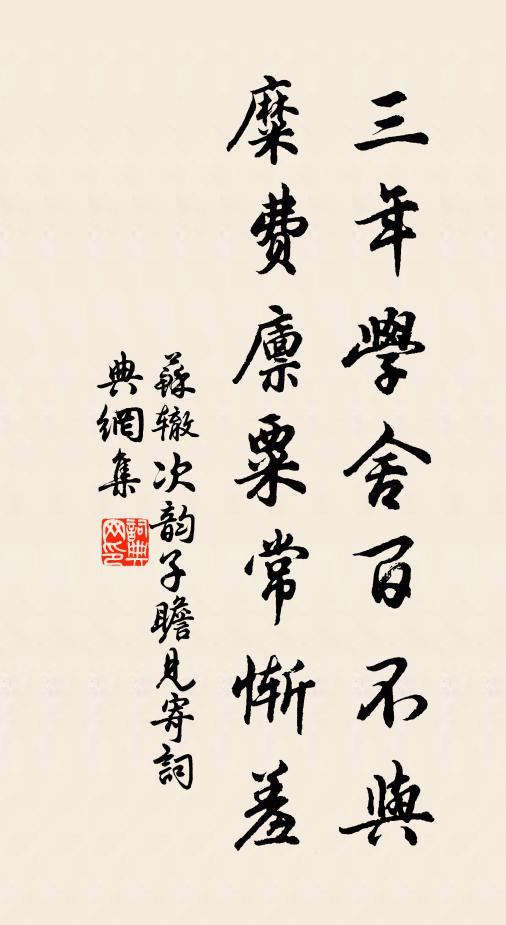 三年學舍百不與
糜費廪粟常慚羞
蘇辙次韵子瞻見寄詞
典網集
詞典网印